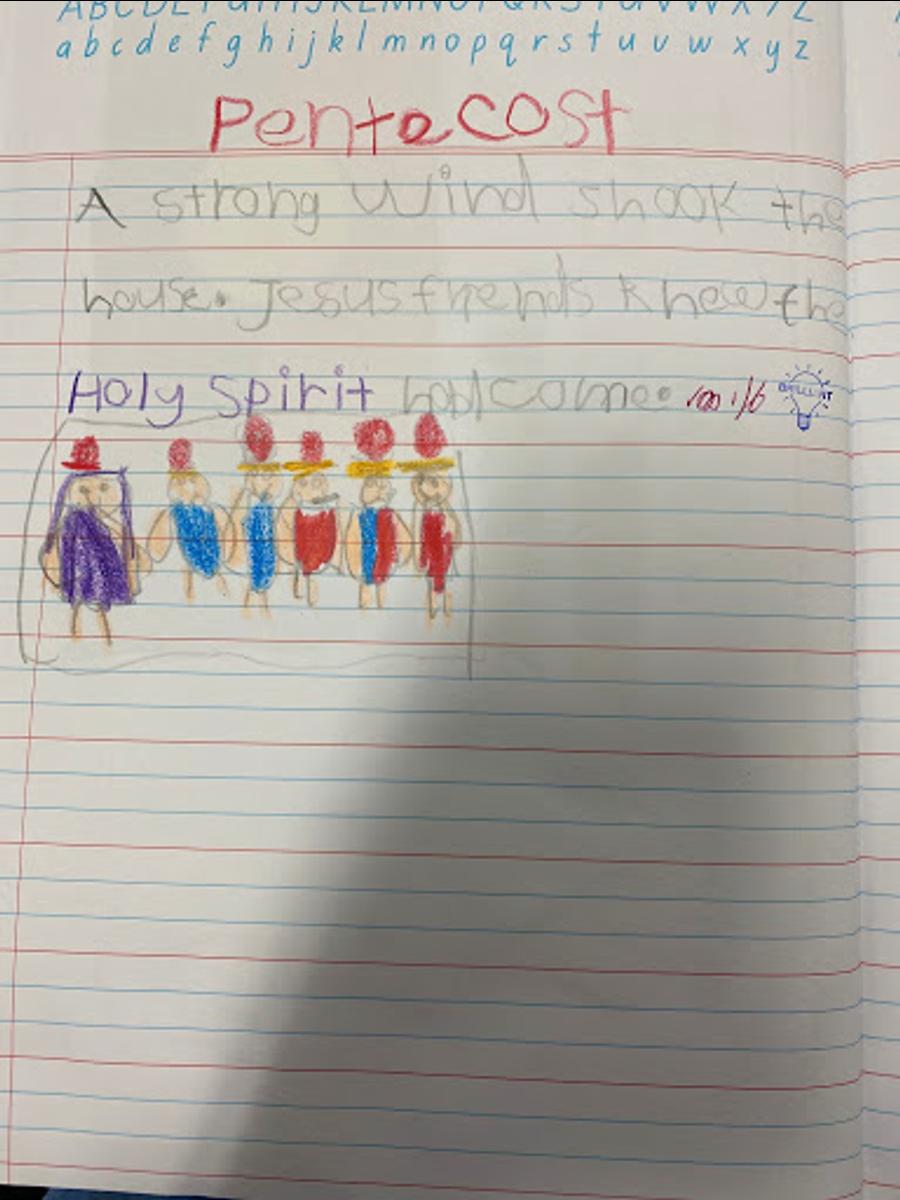 ABCDEFGHIJKLMNOPQRSTUVWXYZ
abcdefghijklmnopqrstuvwxyz
Pentecost
A strong wind shook the
house. Jesus friends knew the
Holy Spirit had come. 1/6 BRILLIANT